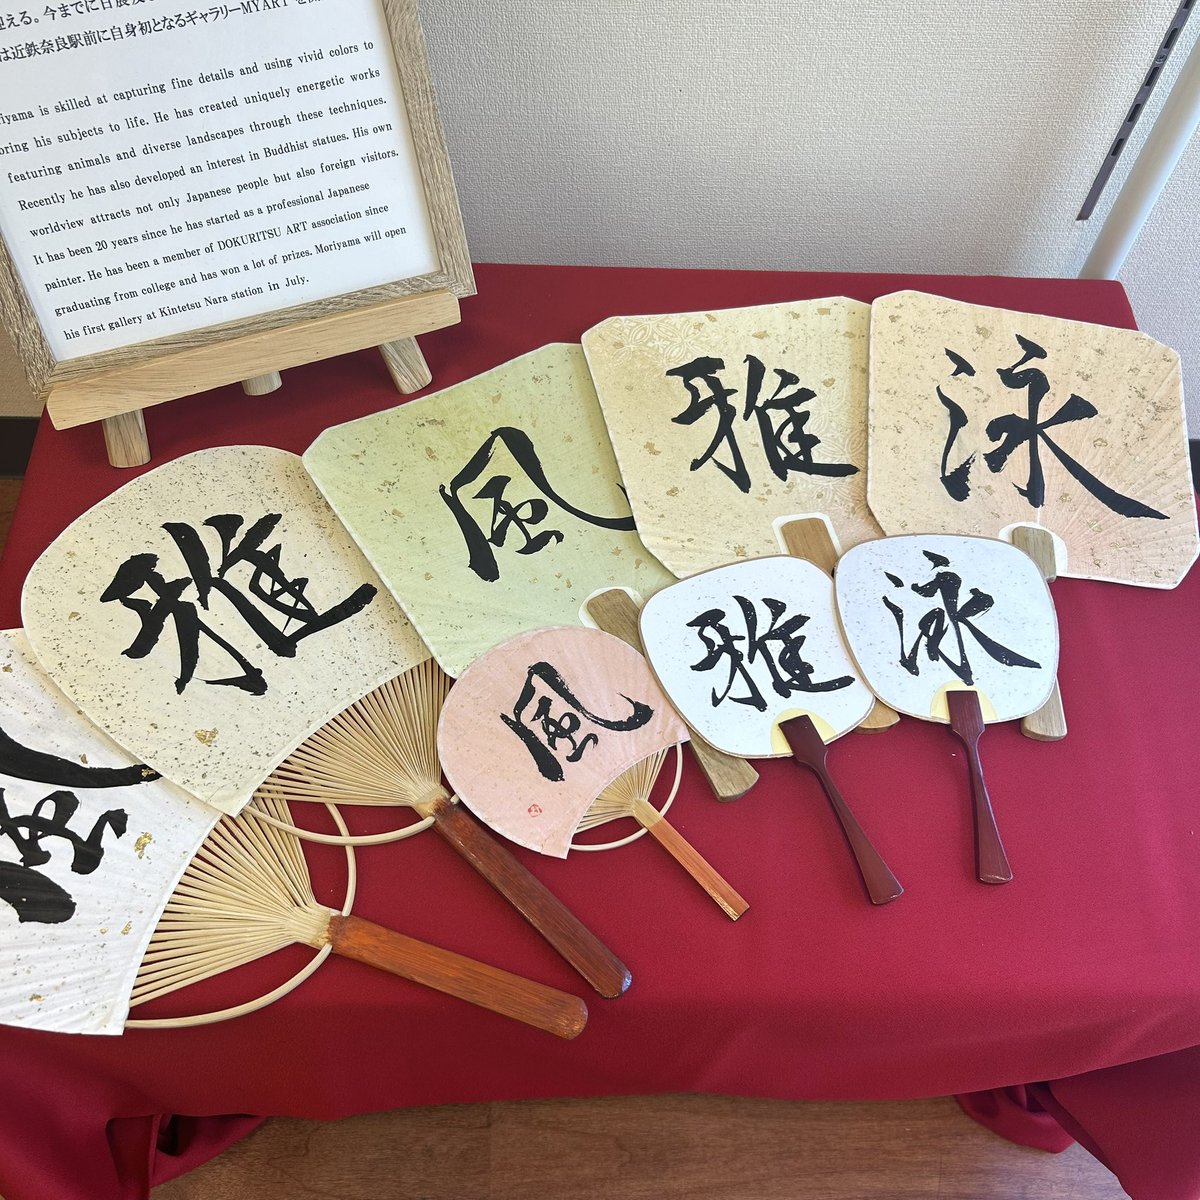 える。今までに
は近鉄奈良駅前に自身初となるギャラリーMYART
is skilled at capturing fine details and using vivid colors to
bring his subjects to life. He has created uniquely energetic works
featuring animals and diverse landscapes through these techniques.
Recently he has also developed an interest in Buddhist statues. His own
worldview attracts not only Japanese people but also foreign visitors.
It has been 20 years since he has started as a professional Japanese
painter. He has been a member of DOKURITSU ART association since
graduating from college and has won a lot of prizes. Moriyama will open
his first gallery at Kintetsu Nara station in July.
雅
風
雅
泳
風
雅
泳